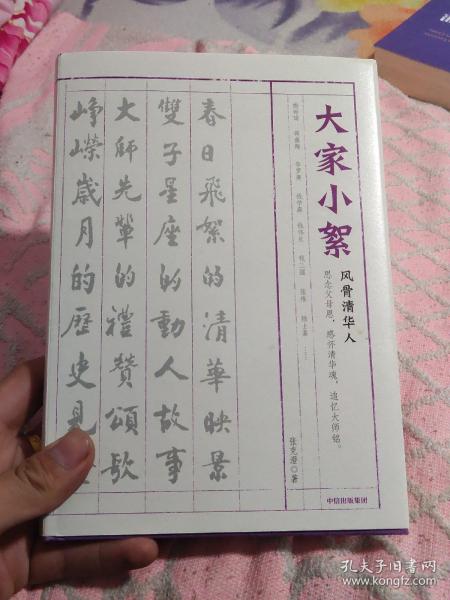 大家小絮
风骨清华人
思念父母恩，感怀清华魂，追忆大师铭。
张克澄 著
中信出版集团
春日飛絮的清華映景
雙子星座的動人故事
大師先輩的禮贊頌歌
崢嶸歲月的歷史見
孔夫子旧书网
www.kongfz.com